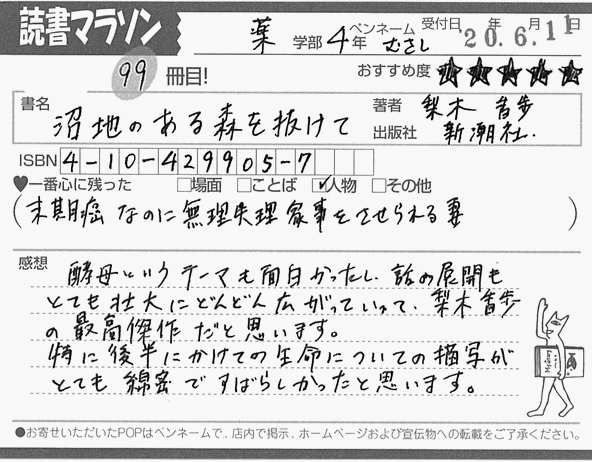 読書マラソン
薬 学部 4年 ペンネーム むさし 受付日 '20.6.11 年 月 日
99 冊目! おすすめ度 ★★★★★
書名 沼地のある森を抜けて 著者 梨木香歩
出版社 新潮社.
ISBN 4-10-429905-7
♥一番心に残った □場面 □ことば ☑人物 □その他
(末期癌なのに無理矢理家事をさせられる妻)
感想 酵母というテーマも面白かったし、話の展開も
とても壮大にどんどん広がっていって、梨木香歩
の最高傑作だと思います。
特に後半にかけての生命についての描写が
とても綿密ですばらしかったと思います。
●お寄せいただいたPOPはペンネームで、店内で掲示、ホームページおよび宣伝物への転載をご了承ください。